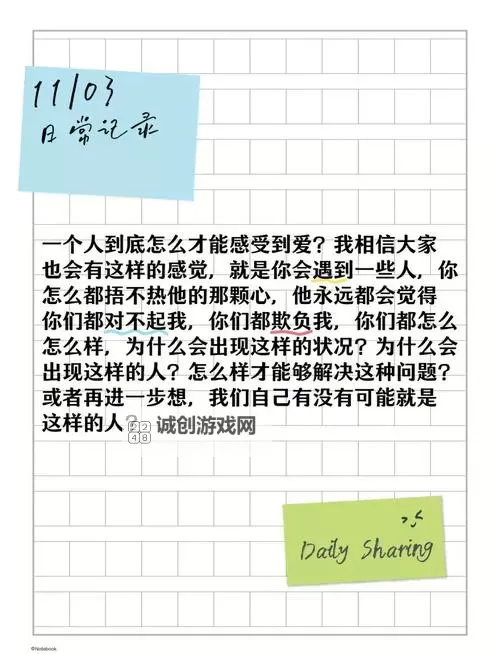 11/03
日常记录
一个人到底怎么才能感受到爱？我相信大家
也会有这样的感觉，就是你会遇到一些人，你
怎么都捂不热他的那颗心，他永远都会觉得
你们都对不起我，你们都欺负我，你们都怎么
怎么样，为什么会出现这样的状况？为什么会
出现这样的人？怎么样才能够解决这种问题？
或者再进一步想，我们自己有没有可能就是
这样的人？
2248 诚创游戏网
Daily Sharing
©Notebook